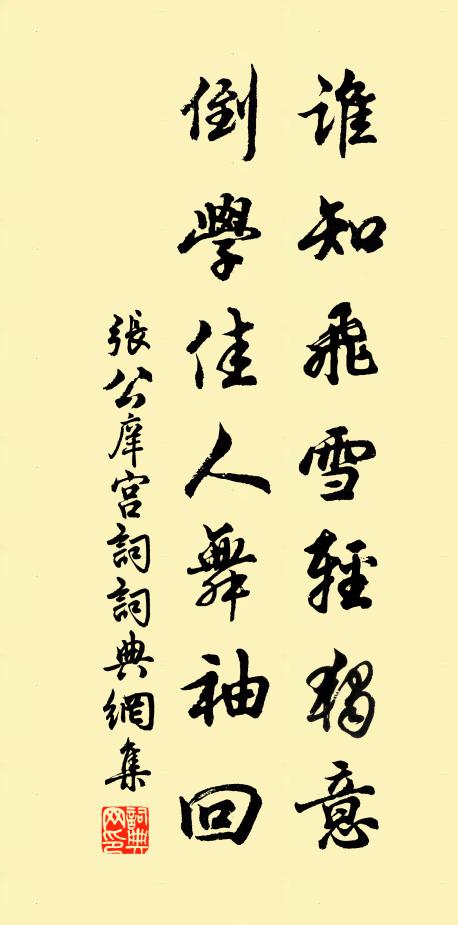 誰知飛雪輕獨意
倒學佳人舞袖回
張公庠宮詞詞典網集
詞典
网印